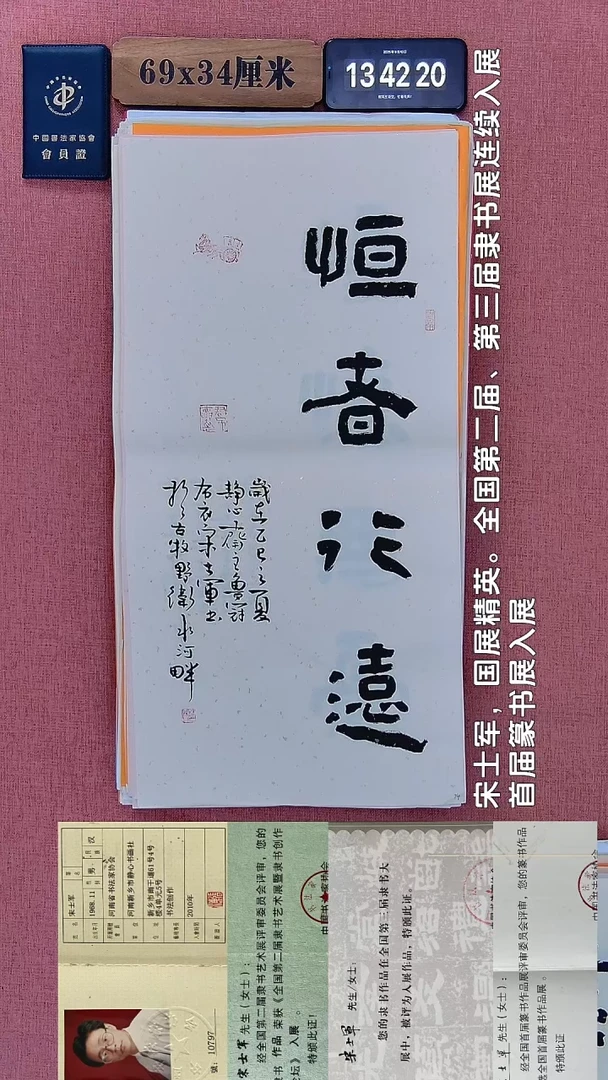 中國書法家協會
會員證
69x34厘米
13 42 20
恒者行遠
歲在乙巳之夏
静心齋主魯冠
布衣宋士軍書
於古牧野衛水河畔
宋士军，国展精英。全国第二届、第三届隶书展连续入展
首届篆书展入展
宋士军
男
汉
1968.11
河南省书法家协会
河南新乡市静心书画社
书法创作
2010年
號: 10797
宋士军 先生(女士)：
经全国第二届隶书艺术展评审委员会评审，您的
隶书作品 荣获《全国第二届隶书艺术展暨隶书创作
论坛》入展。
特颁此证！
宋士军 先生/女士：
您的隶书作品在全国第三届隶书大
展中，被评为入展作品，特颁此证。
士军 先生(女士)：
经全国首届篆书作品展评审委员会评审，您的篆书作品
全国首届篆书作品展。
特颁此证